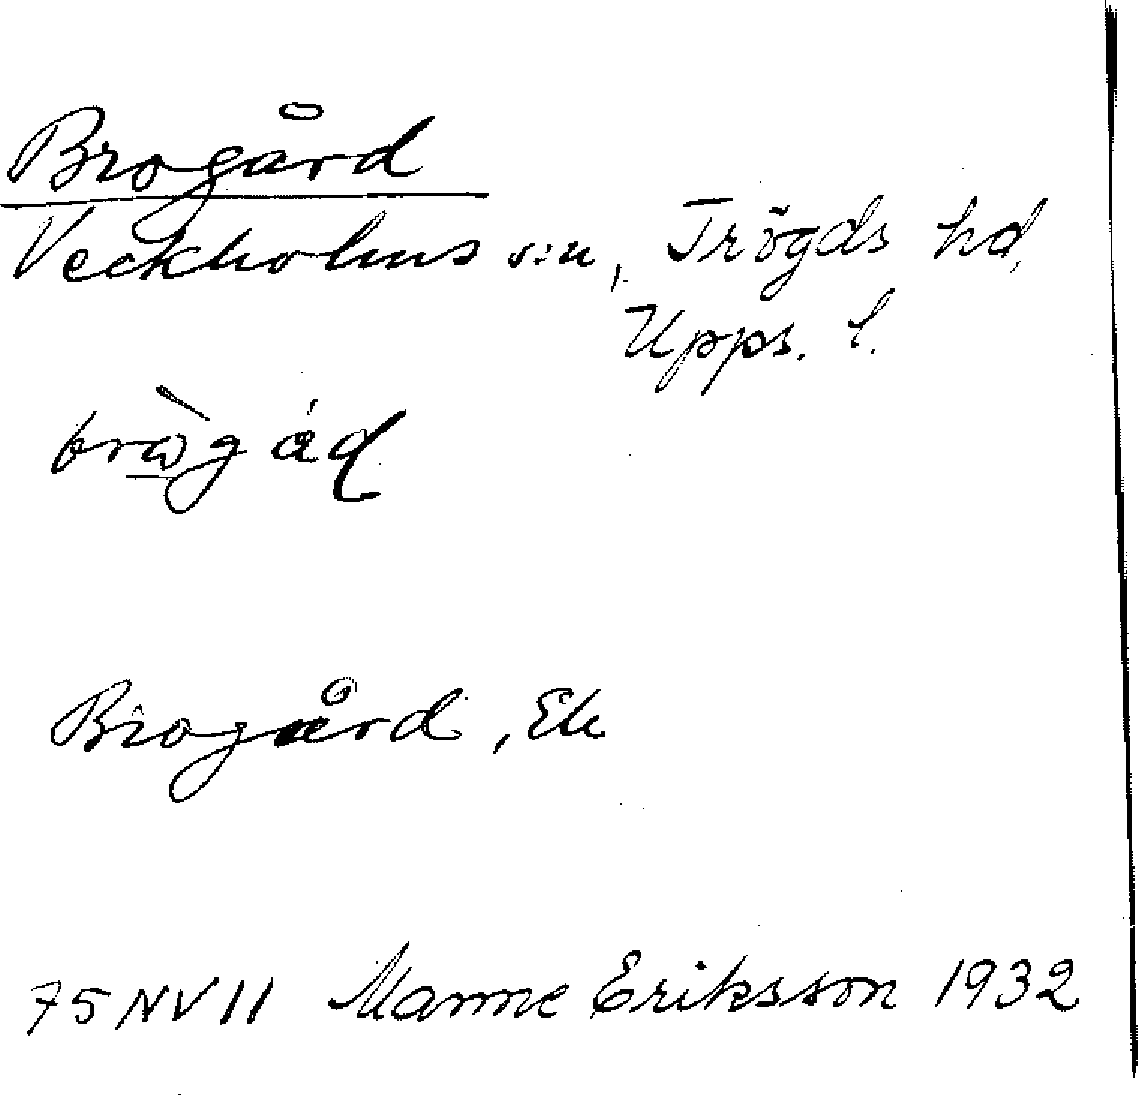 Brogård
Veckholms sn, Trögds hd,
Upps. l.
Brogård, Ek
75 NV 11 Manne Eriksson 1932